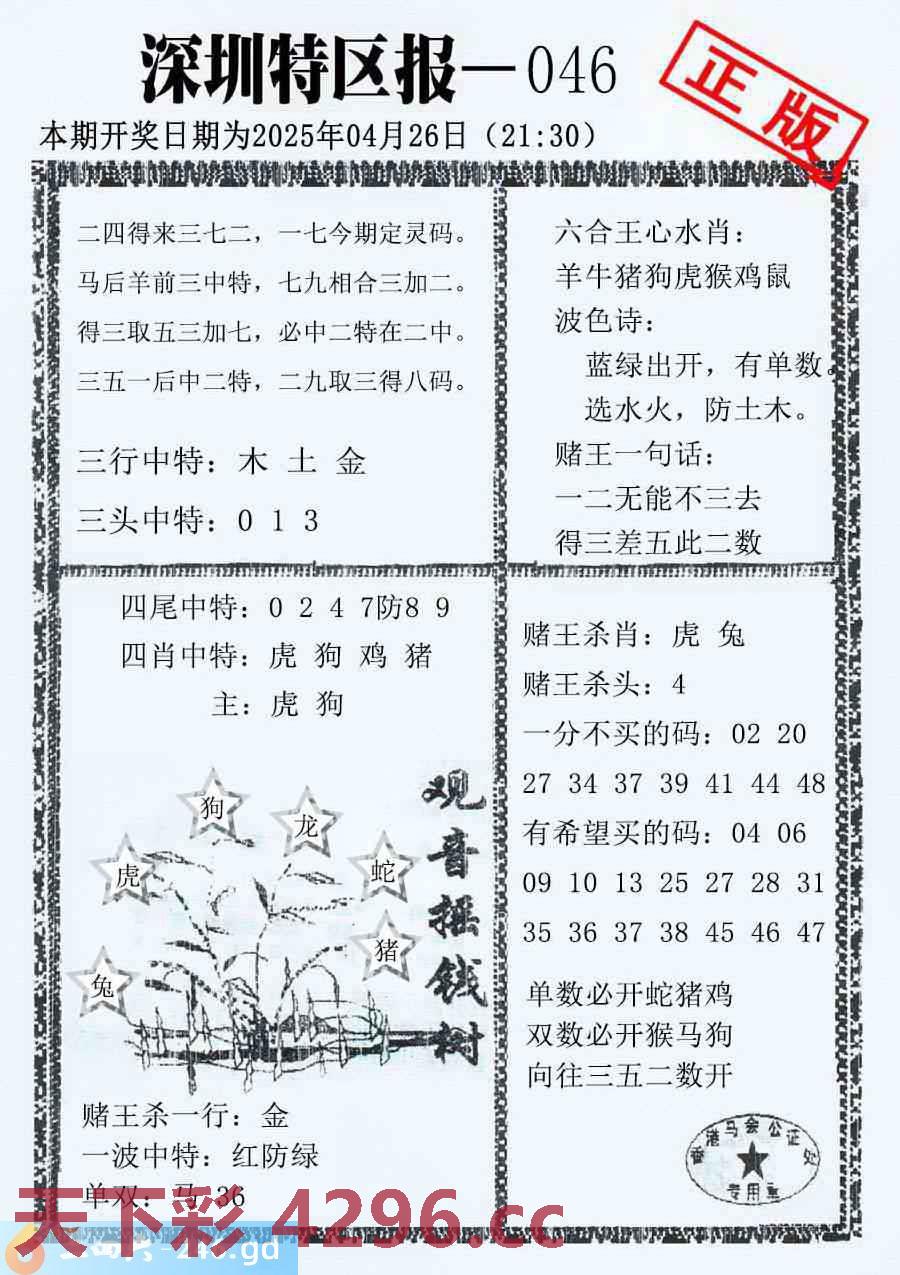 深圳特区报—046
正版
本期开奖日期为2025年04月26日（21:30）
二四得来三七二，一七今期定灵码。
马后羊前三中特，七九相合三加二。
得三取五三加七，必中二特在二中。
三五一后中二特，二九取三得八码。
三行中特：木 土 金
三头中特：0 1 3
六合王心水肖：
羊牛猪狗虎猴鸡鼠
波色诗：
蓝绿出开，有单数。
选水火，防土木。
赌王一句话：
一二无能不三去
得三差五此二数
四尾中特：0 2 4 7防8 9
四肖中特：虎 狗 鸡 猪
主：虎 狗
观音摇钱树
狗
龙
虎
蛇
猪
兔
赌王杀一行：金
一波中特：红防绿
单双：马 36
赌王杀肖：虎 兔
赌王杀头：4
一分不买的码：02 20
27 34 37 39 41 44 48
有希望买的码：04 06
09 10 13 25 27 28 31
35 36 37 38 45 46 47
单数必开蛇猪鸡
双数必开猴马狗
向往三五二数开
香港马会公证处
专用章
天下彩 4296.cc
-246.gd